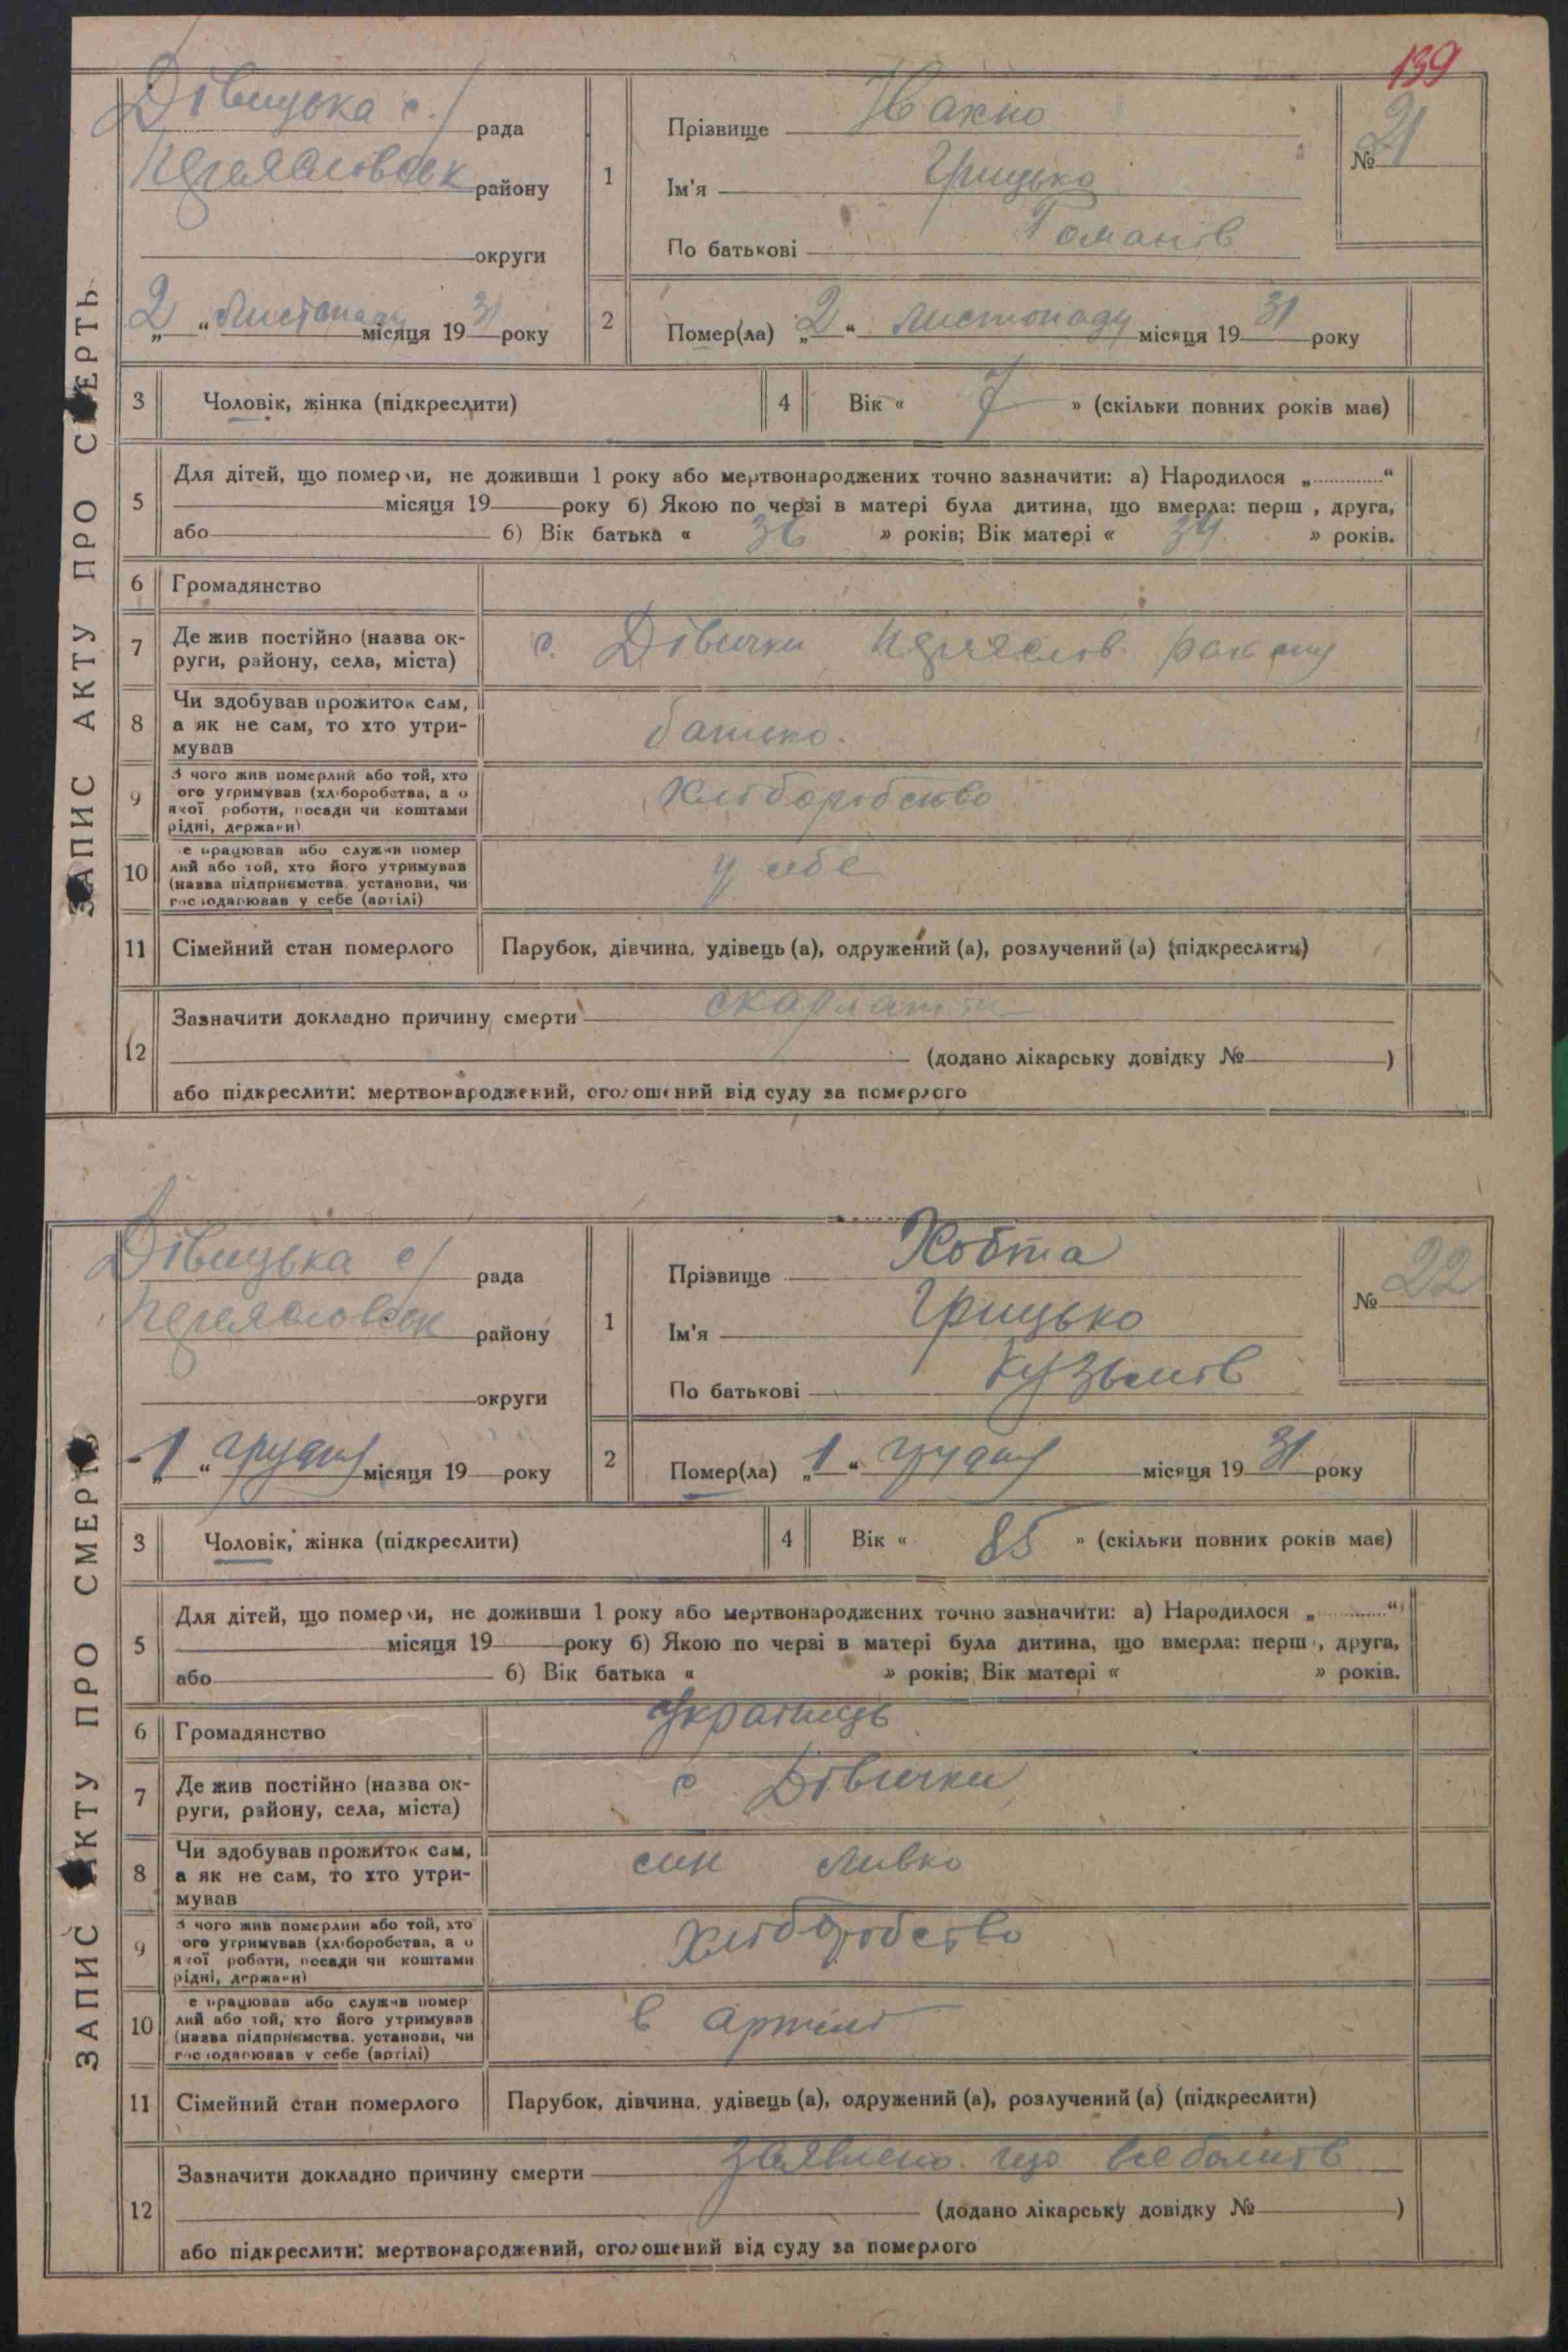 139
Дівицька с/ рада
Переясловськ району
округи
„2“ Листопаду місяця 1931 року
1
Прізвище Нахно
Ім'я Грицько
По батькові Романів
№ 21
2
Помер(ла) „2“ листопаду місяця 1931 року
ЗАПИС АКТУ ПРО СМЕРТЬ
3 Чоловік, жінка (підкреслити)
4 Вік « 7 » (скільки повних років має)
5 Для дітей, що померли, не доживши 1 року або мертвонароджених точно зазначити: а) Народилося „............“
місяця 19 року б) Якою по черзі в матері була дитина, що вмерла: перш , друга,
або б) Вік батька « 36 » років; Вік матері « 34 » років.
6 Громадянство
7 Де жив постійно (назва ок-
руги, району, села, міста)
с. Дівички Переяслов. району
8 Чи здобував прожиток сам,
а як не сам, то хто утри-
мував
батько.
9 З чого жив померлий або той, хто
ого утримував (хліборобства, а о
якої роботи, посади чи коштами
рідні, держави)
Хліборобство
10 е працював або служив помер
лий або той, хто його утримував
(назва підприємства, установи, чи
господарював у себе (артілі)
у себе
11 Сімейний стан померлого Парубок, дівчина, удівець (а), одружений (а), розлучений (а) (підкреслити)
12 Зазначити докладно причину смерти скарлатина
(додано лікарську довідку № )
або підкреслити: мертвонароджений, оголошений від суду за померлого
Дівицька с/ рада
Переясловськ району
округи
„1“ грудня місяця 19 року
1
Прізвище Хобта
Ім'я Грицько
По батькові Кузьмів
№ 22
2
Помер(ла) „1“ грудня місяця 1931 року
ЗАПИС АКТУ ПРО СМЕРТЬ
3 Чоловік, жінка (підкреслити)
4 Вік « 85 » (скільки повних років має)
5 Для дітей, що померли, не доживши 1 року або мертвонароджених точно зазначити: а) Народилося „............“
місяця 19 року б) Якою по черзі в матері була дитина, що вмерла: перш , друга,
або б) Вік батька « » років; Вік матері « » років.
6 Громадянство Українець
7 Де жив постійно (назва ок-
руги, району, села, міста)
с Дівички
8 Чи здобував прожиток сам,
а як не сам, то хто утри-
мував
син
9 З чого жив померлий або той, хто
ого утримував (хліборобства, а о
якої роботи, посади чи коштами
рідні, держави)
Хліборобство
10 е працював або служив помер
лий або той, хто його утримував
(назва підприємства, установи, чи
господарював у себе (артілі)
в артілі
11 Сімейний стан померлого Парубок, дівчина, удівець (а), одружений (а), розлучений (а) (підкреслити)
12 Зазначити докладно причину смерти заявлено що
(додано лікарську довідку № )
або підкреслити: мертвонароджений, оголошений від суду за померлого